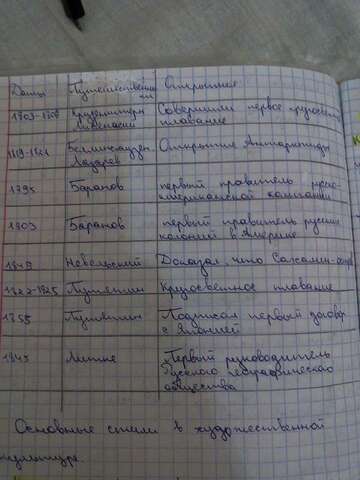 Даты Путешественники Открытия
1803-1806 Крузенштерн Совершили первое кругосветн
Лисянский плавание
1819-1821 Беллинсгаузен Открытие Антарктиды
Лазарев
1795 Баранов первый правитель русско-
американской компании
1803 Баранов первый правитель русских
колоний в Америке
1849 Невельский Доказал, что Сахалин-остров
1822-1825 Путятин Кругосветное плавание
1855 Путятин Подписал первый договор
с Японией
1845 Литке Первый руководитель
Русского географического
общества
Основные стили в художественной
культуре.